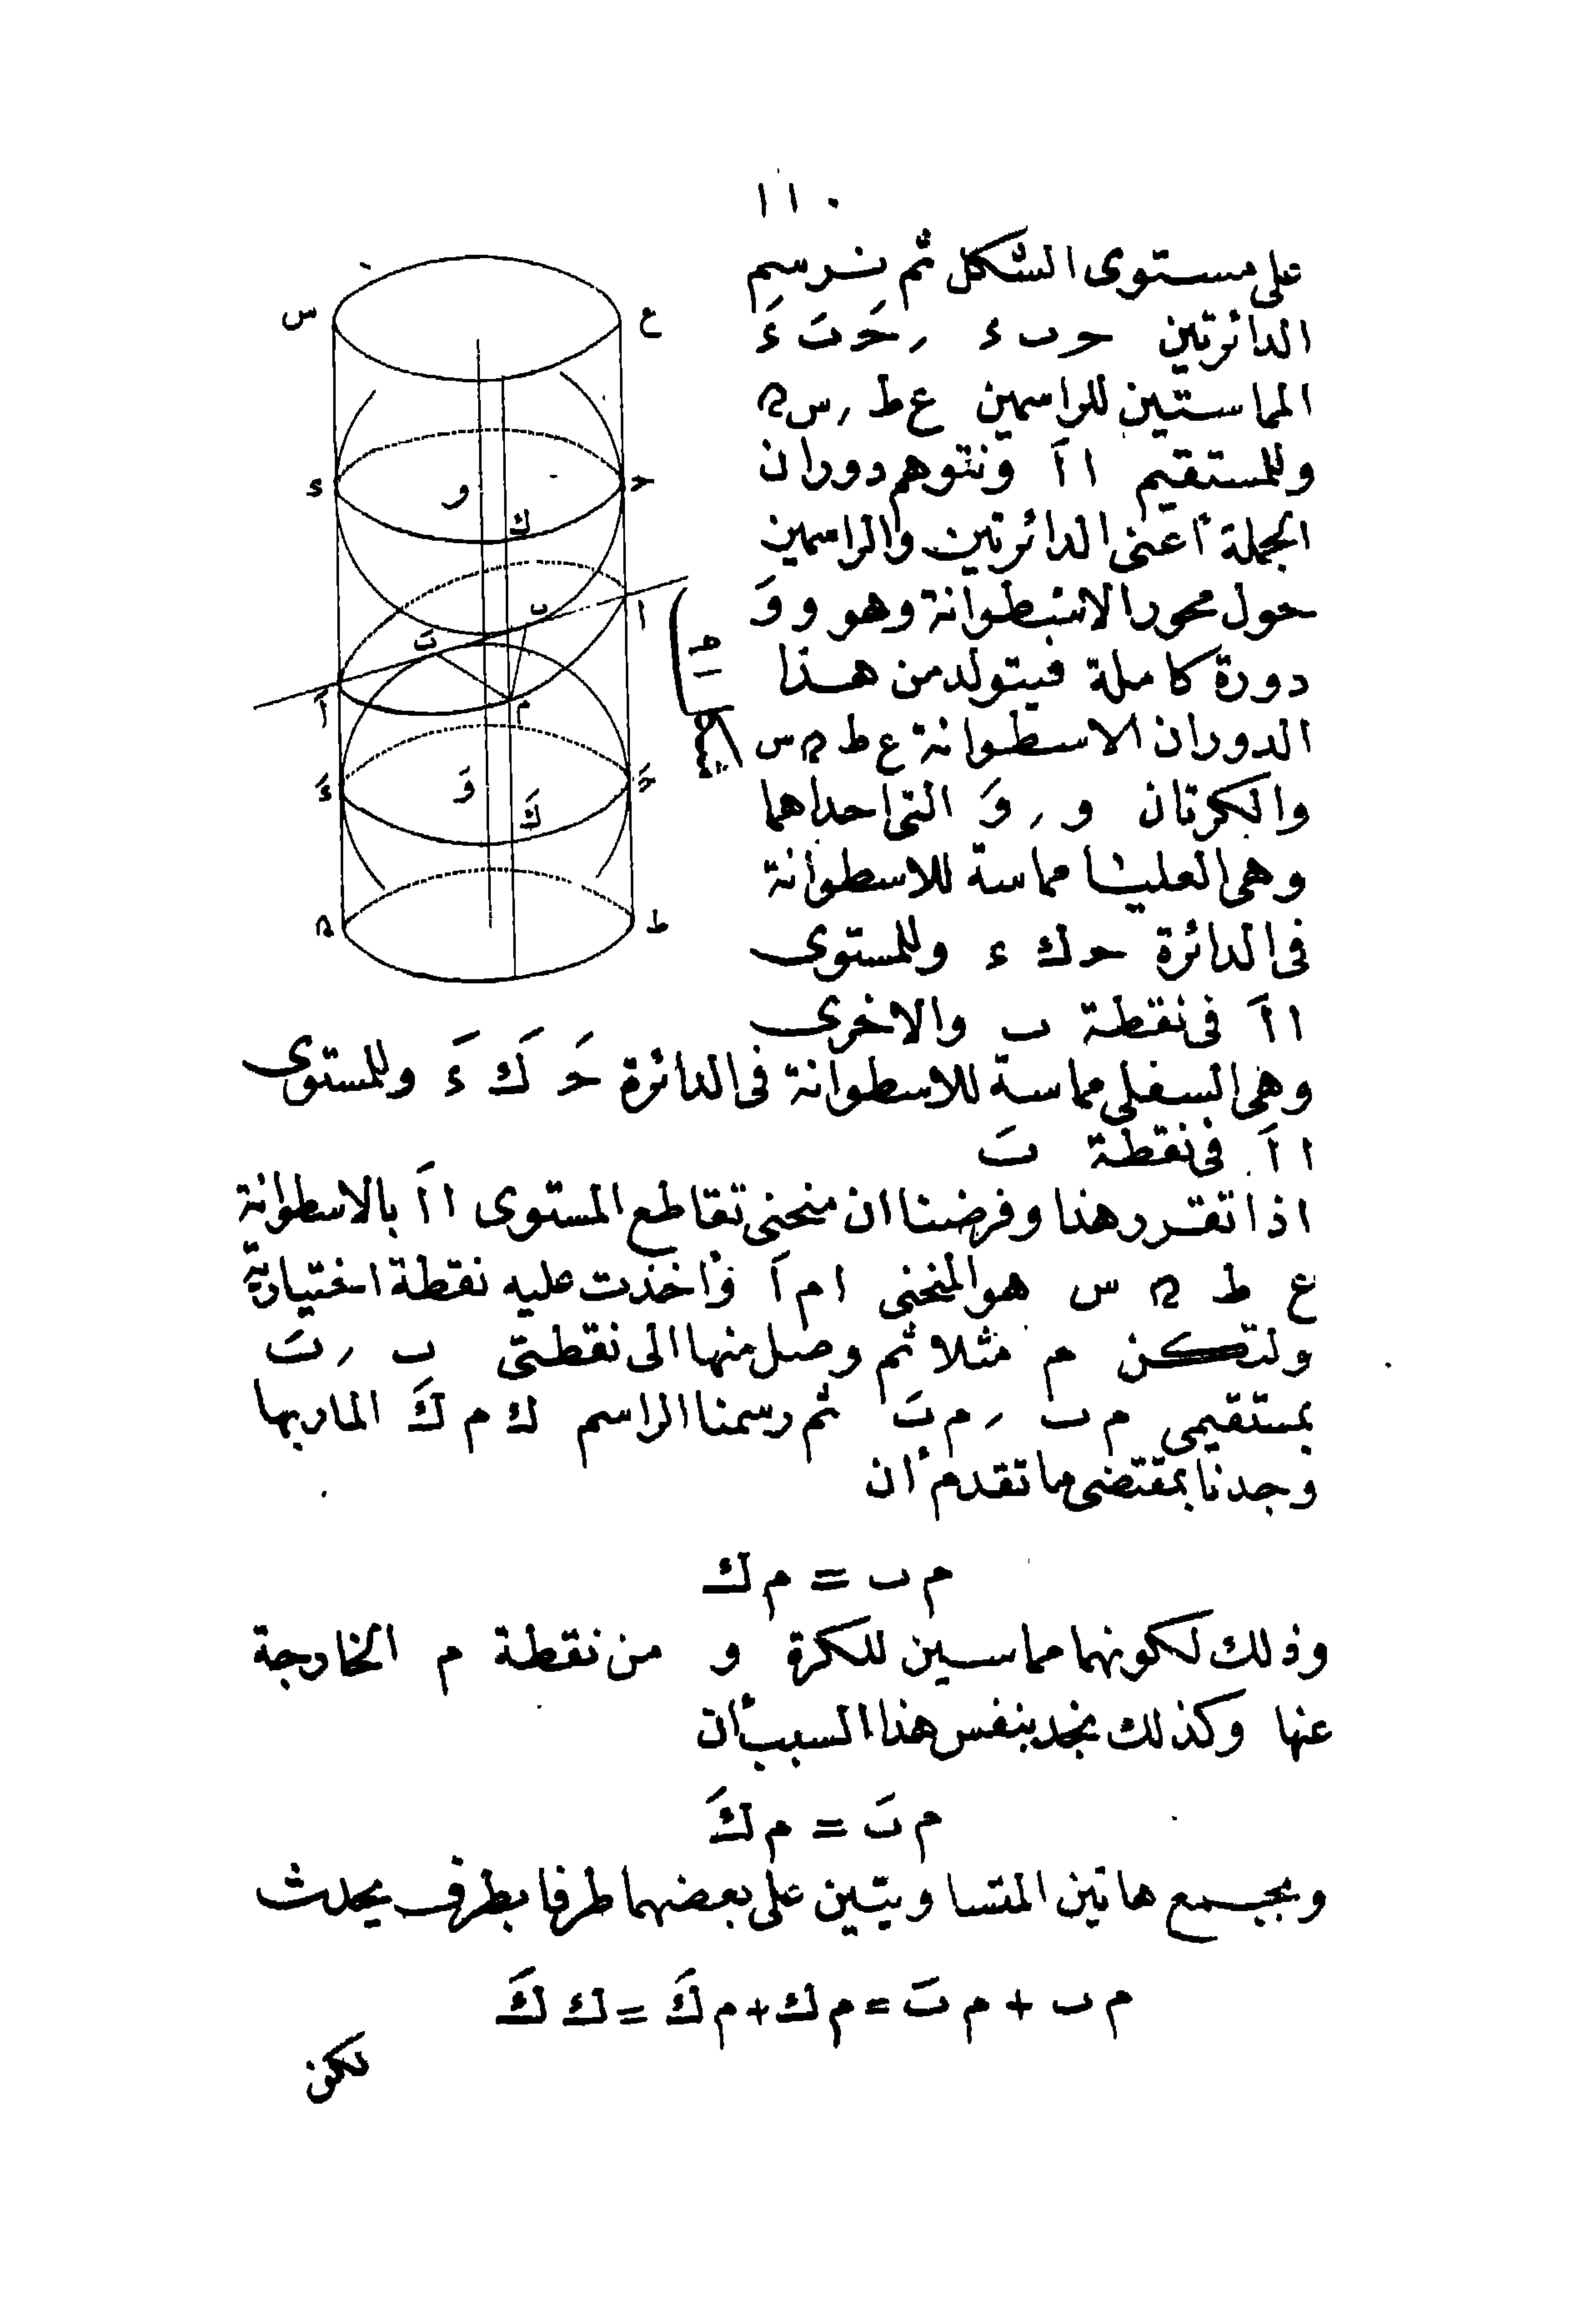 ١١٠
على مستوى الشكل ثم نرسم
الدائرتين حـ ب ء , حـَ بَ ءَ
المماستين للراسمين ع ط , س ﻫ
وللمستقيم ا اَ ونتوهم دوران
الجملة أعنى الدائرتين والراسمين
حول محور الاسطوانة وهو و وَ
دورة كاملة فيتولد من هذا
الدوران الاسطوانة ع ط ﻫ س
والكرتان و , وَ التى احداهما
وهى العليا مماسة للاسطوانة
فى الدائرة حـ ك ء وللمستوى
ا اَ فى نقطة ب والاخرى
وهى السفلى مماسة للاسطوانة فى الدائرة حـَ كَ ءَ وللمستوى
ا اَ فى نقطة بَ
اذا تقرر هذا وفرضنا ان منحنى تقاطع المستوى ا اَ بالاسطوانة
ع ط ﻫ س هو المنحنى ا م اَ وأخذت عليه نقطة اختيارية
ولتكن م مثلا ثم وصل منها الى نقطتى ب , بَ
بمستقيمى م ب , م بَ ثم رسمنا الراسم ك م كَ المار بها
وجدنا بمقتضى ما تقدم أن
م ب = م ك
وذلك لكونهما مماسين للكرة و من نقطة م الخارجة
عنها وكذلك نجد بنفس هذا السبب أن
م بَ = م كَ
وبجمع هاتين المتساويتين على بعضهما طرفا بطرف يحدث
م ب + م بَ = م ك + م كَ = ك كَ
لكن
س
ع
ء
و
حـ
ك
ب
ا
بَ
اَ
م
ءَ
وَ
حـَ
كَ
ﻫ
ط